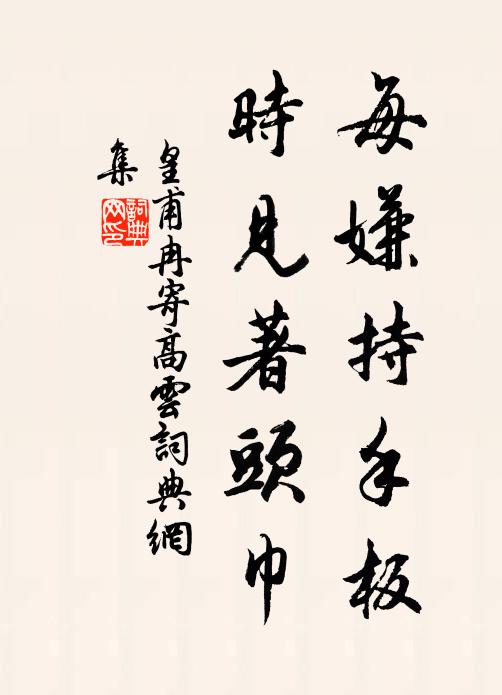 每嫌持手板
時見著頭巾
皇甫冉寄高雲詞典網
集
詞典网印